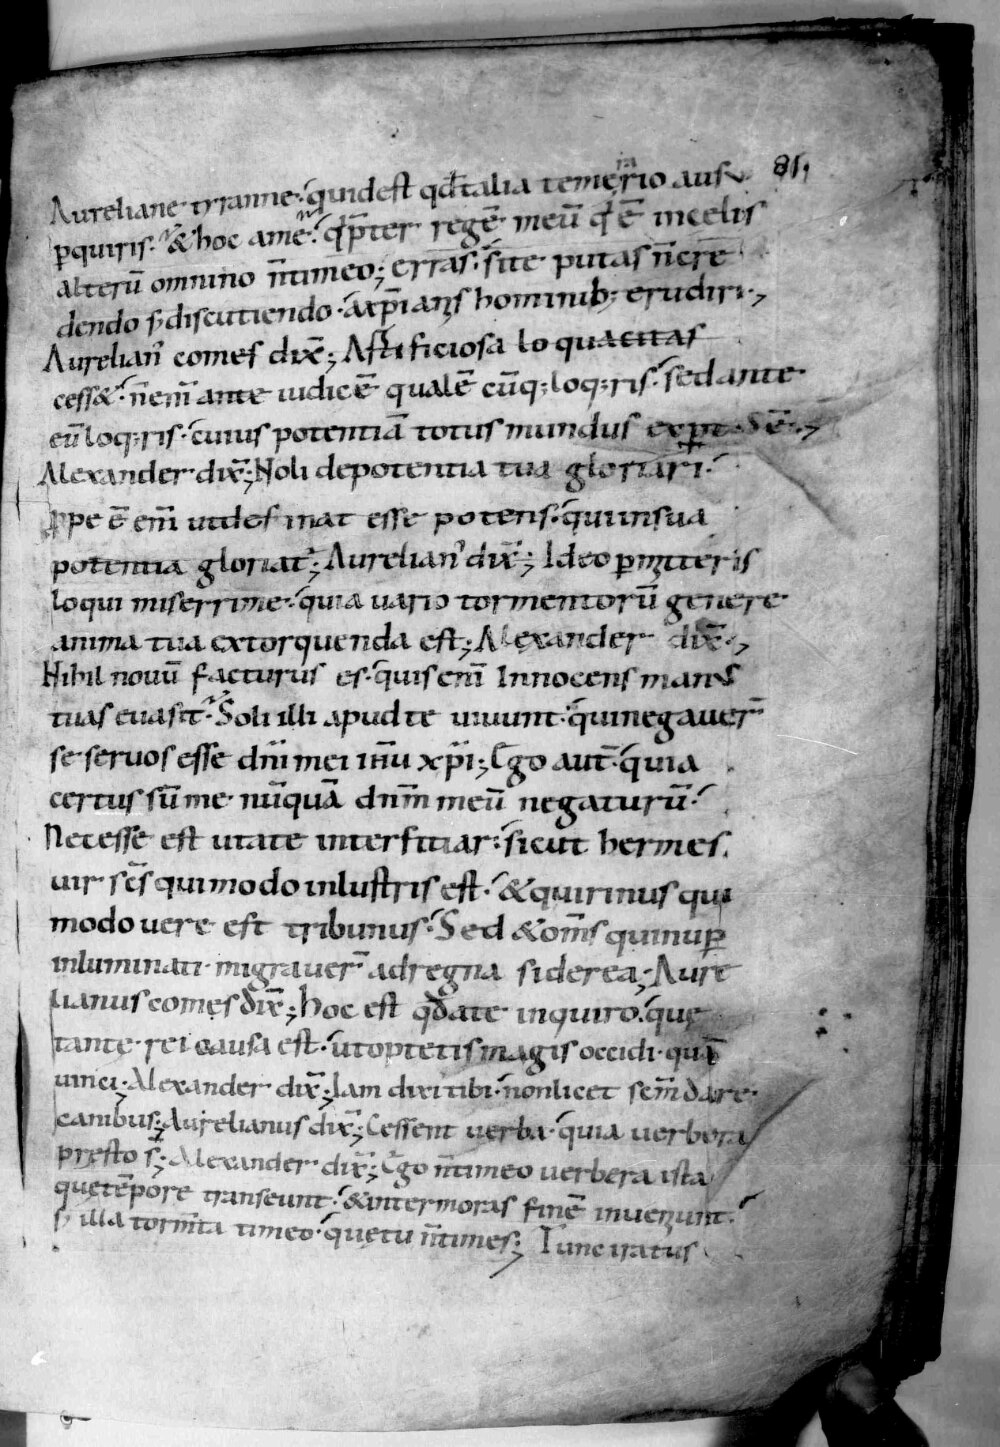 81,
Aureliane tyranne· quid est qđ talia temerario ausu
ꝑquiris· & hoc a me· qđ p̄ter regē meū q̄ ē in celis
alterū omnino n̄ timeo; erras· si te putas n̄ cre
dendo sꝫ discutiendo· a xp̄ianis hominibꝫ erudiri·,
Aurelian᾽ comes dix̄; Artificiosa loquacitas
cess&· n̄ enī ante iudicē qualē cūqꝫ loq̄ris· sed ante
eū loq̄ris· cuius potentiā totus mundus exp̄t· ÷,
Alexander dix̄; Noli de potentia tua gloriari·
ꝓpe ē enī ut desinat esse potens· qui in sua
potentia gloriat̄; Aurelian᾽ dix̄; Ideo ꝑmitteris
loqui miserrime· quia uario tormentorū genere
anima tua extorquenda est; Alexander dix̄·,
Nihil nouū facturus es· quis enī Innocens manus
tuas euasit· Soli illi apud te uiuunt· qui negauer̄
se seruos esse dn̄i mei ihū xp̄i; Ego aut̄· quia
certus sū me nūquā dn̄m meū negaturū·
Necesse est ut a te interfitiar· sicut hermes·
uir sc̄s qui modo inlustris est· & quirinus qui
modo uere est tribunus· Sed & om̄s qui nuꝑ
inluminati· migrauer̄ ad regna siderea; Aure
lianus comes dix̄; hoc est qđ a te inquiro· quę
tante rei causa est· ut optetis magis occidi· quā
uinci; Alexander dix̄; Iam dixi tibi· non licet sc̄m dare·
canibus; Aurelianus dix̄; Cessent uerba· quia uerbera
presto s̄; Alexander dix̄; Ego n̄ timeo uerbera ista
quę tēpore transeunt· & inter moras finē inueniunt·
sꝫ illa torm̄ta timeo· quę tu n̄ times; Tunc iratus